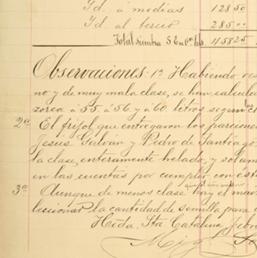 Id. á medias 128 50
Id. al tercio 285 00
Total siembra 458 25
Observaciones. 1ª Habiendo
no y de muy mala clase, se han calcula
zorca á 55 á 56 y á 60 litros segun
2ª El frijol que entregaron los parcioneros
Jesus Galvan y Pedro de Santiago
la clase, enteramente helado, y solam
en las cuentas por cumplir con este
3ª Aunque de menos clase hay el
leccionar la cantidad de semilla para
Hcda. Sta. Catalina,